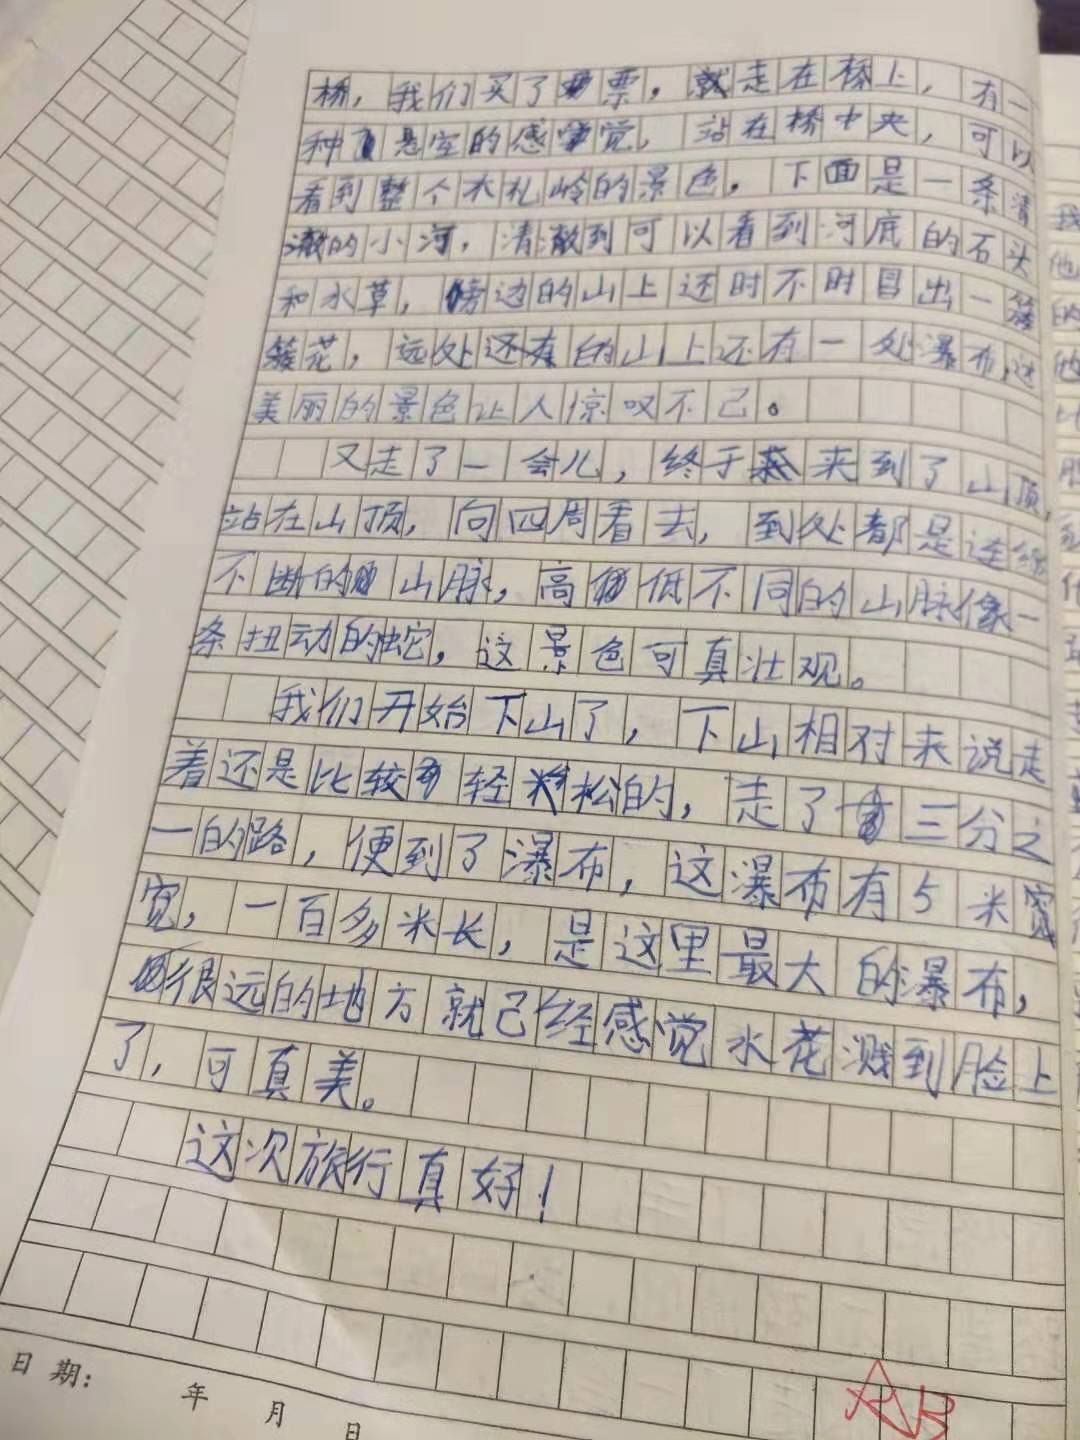 桥，我们买了票，就走在桥上，有一
种悬空的感觉，站在桥中央，可以
看到整个木札岭的景色，下面是一条清
澈的小河，清澈到可以看到河底的石头
和水草，傍边的山上还时不时冒出一簇
簇花，远处还有的山上还有一处瀑布,这
美丽的景色让人惊叹不己。
又走了一会儿，终于来到了山顶,
站在山顶，向四周看去，到处都是连绵
不断的山脉，高低不同的山脉像一
条扭动的蛇，这景色可真壮观。
我们开始下山了，下山相对来说走
着还是比较轻松的，走了三分之
一的路，便到了瀑布，这瀑布有5米宽
宽，一百多米长，是这里最大的瀑布，
很远的地方就己经感觉水花溅到脸上
了，可真美。
这次旅行真好！
日期： 年 月 日
AB